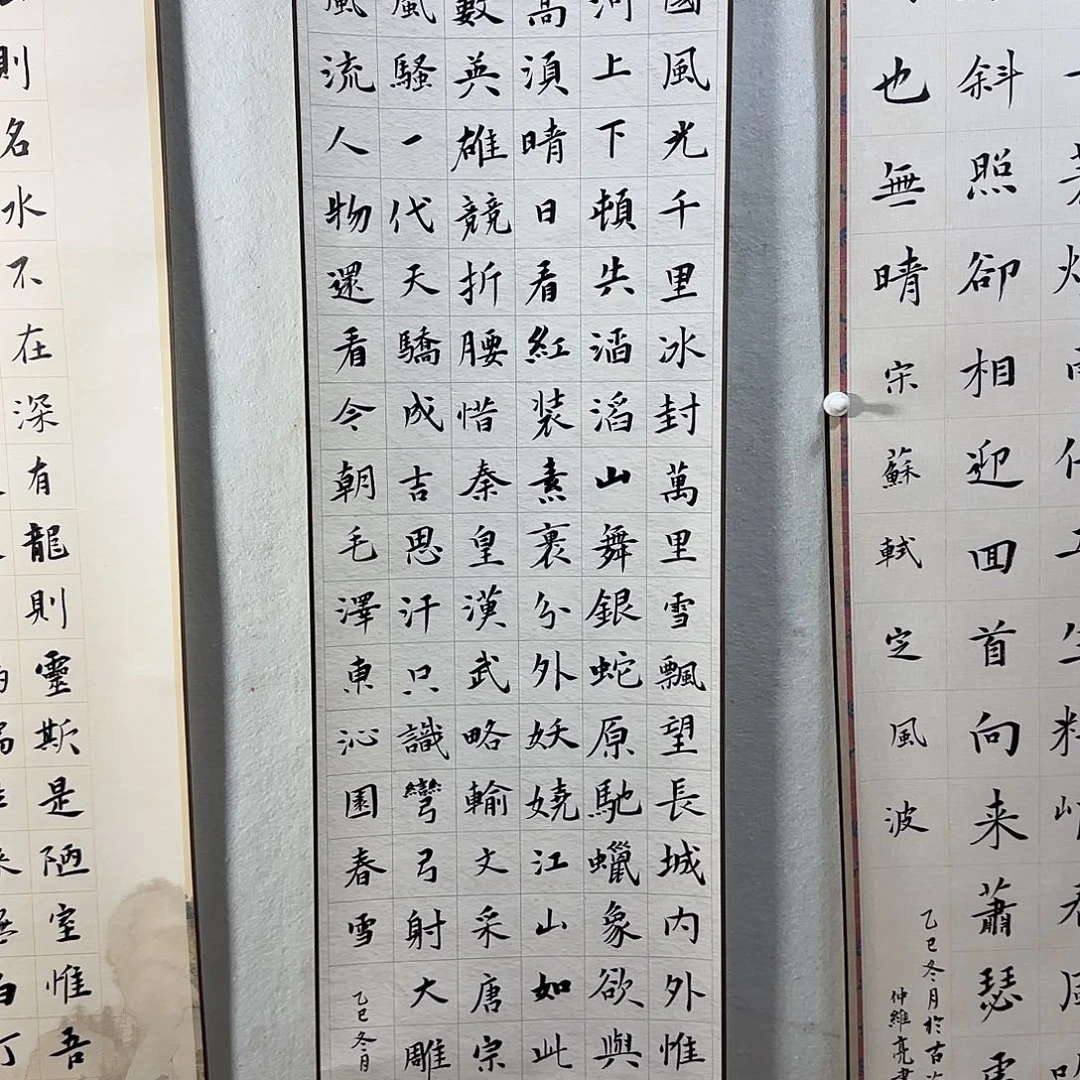 蓑煙雨任平生料峭春風
斜照卻相迎回首向来蕭瑟處
也無晴宋蘇軾定風波
乙巳冬月於古
仲維亮書
國風光千里冰封萬里雪飄望長城内外惟
河上下頓失滔滔山舞銀蛇原馳蠟象欲與
高須晴日看紅装素裹分外妖嬈江山如此
數英雄競折腰惜秦皇漢武略輸文采唐宗
風騷一代天驕成吉思汗只識彎弓射大雕
風流人物還看今朝毛澤東沁園春雪
乙巳冬月
則名水不在深有龍則靈斯是陋室惟吾
来無白丁